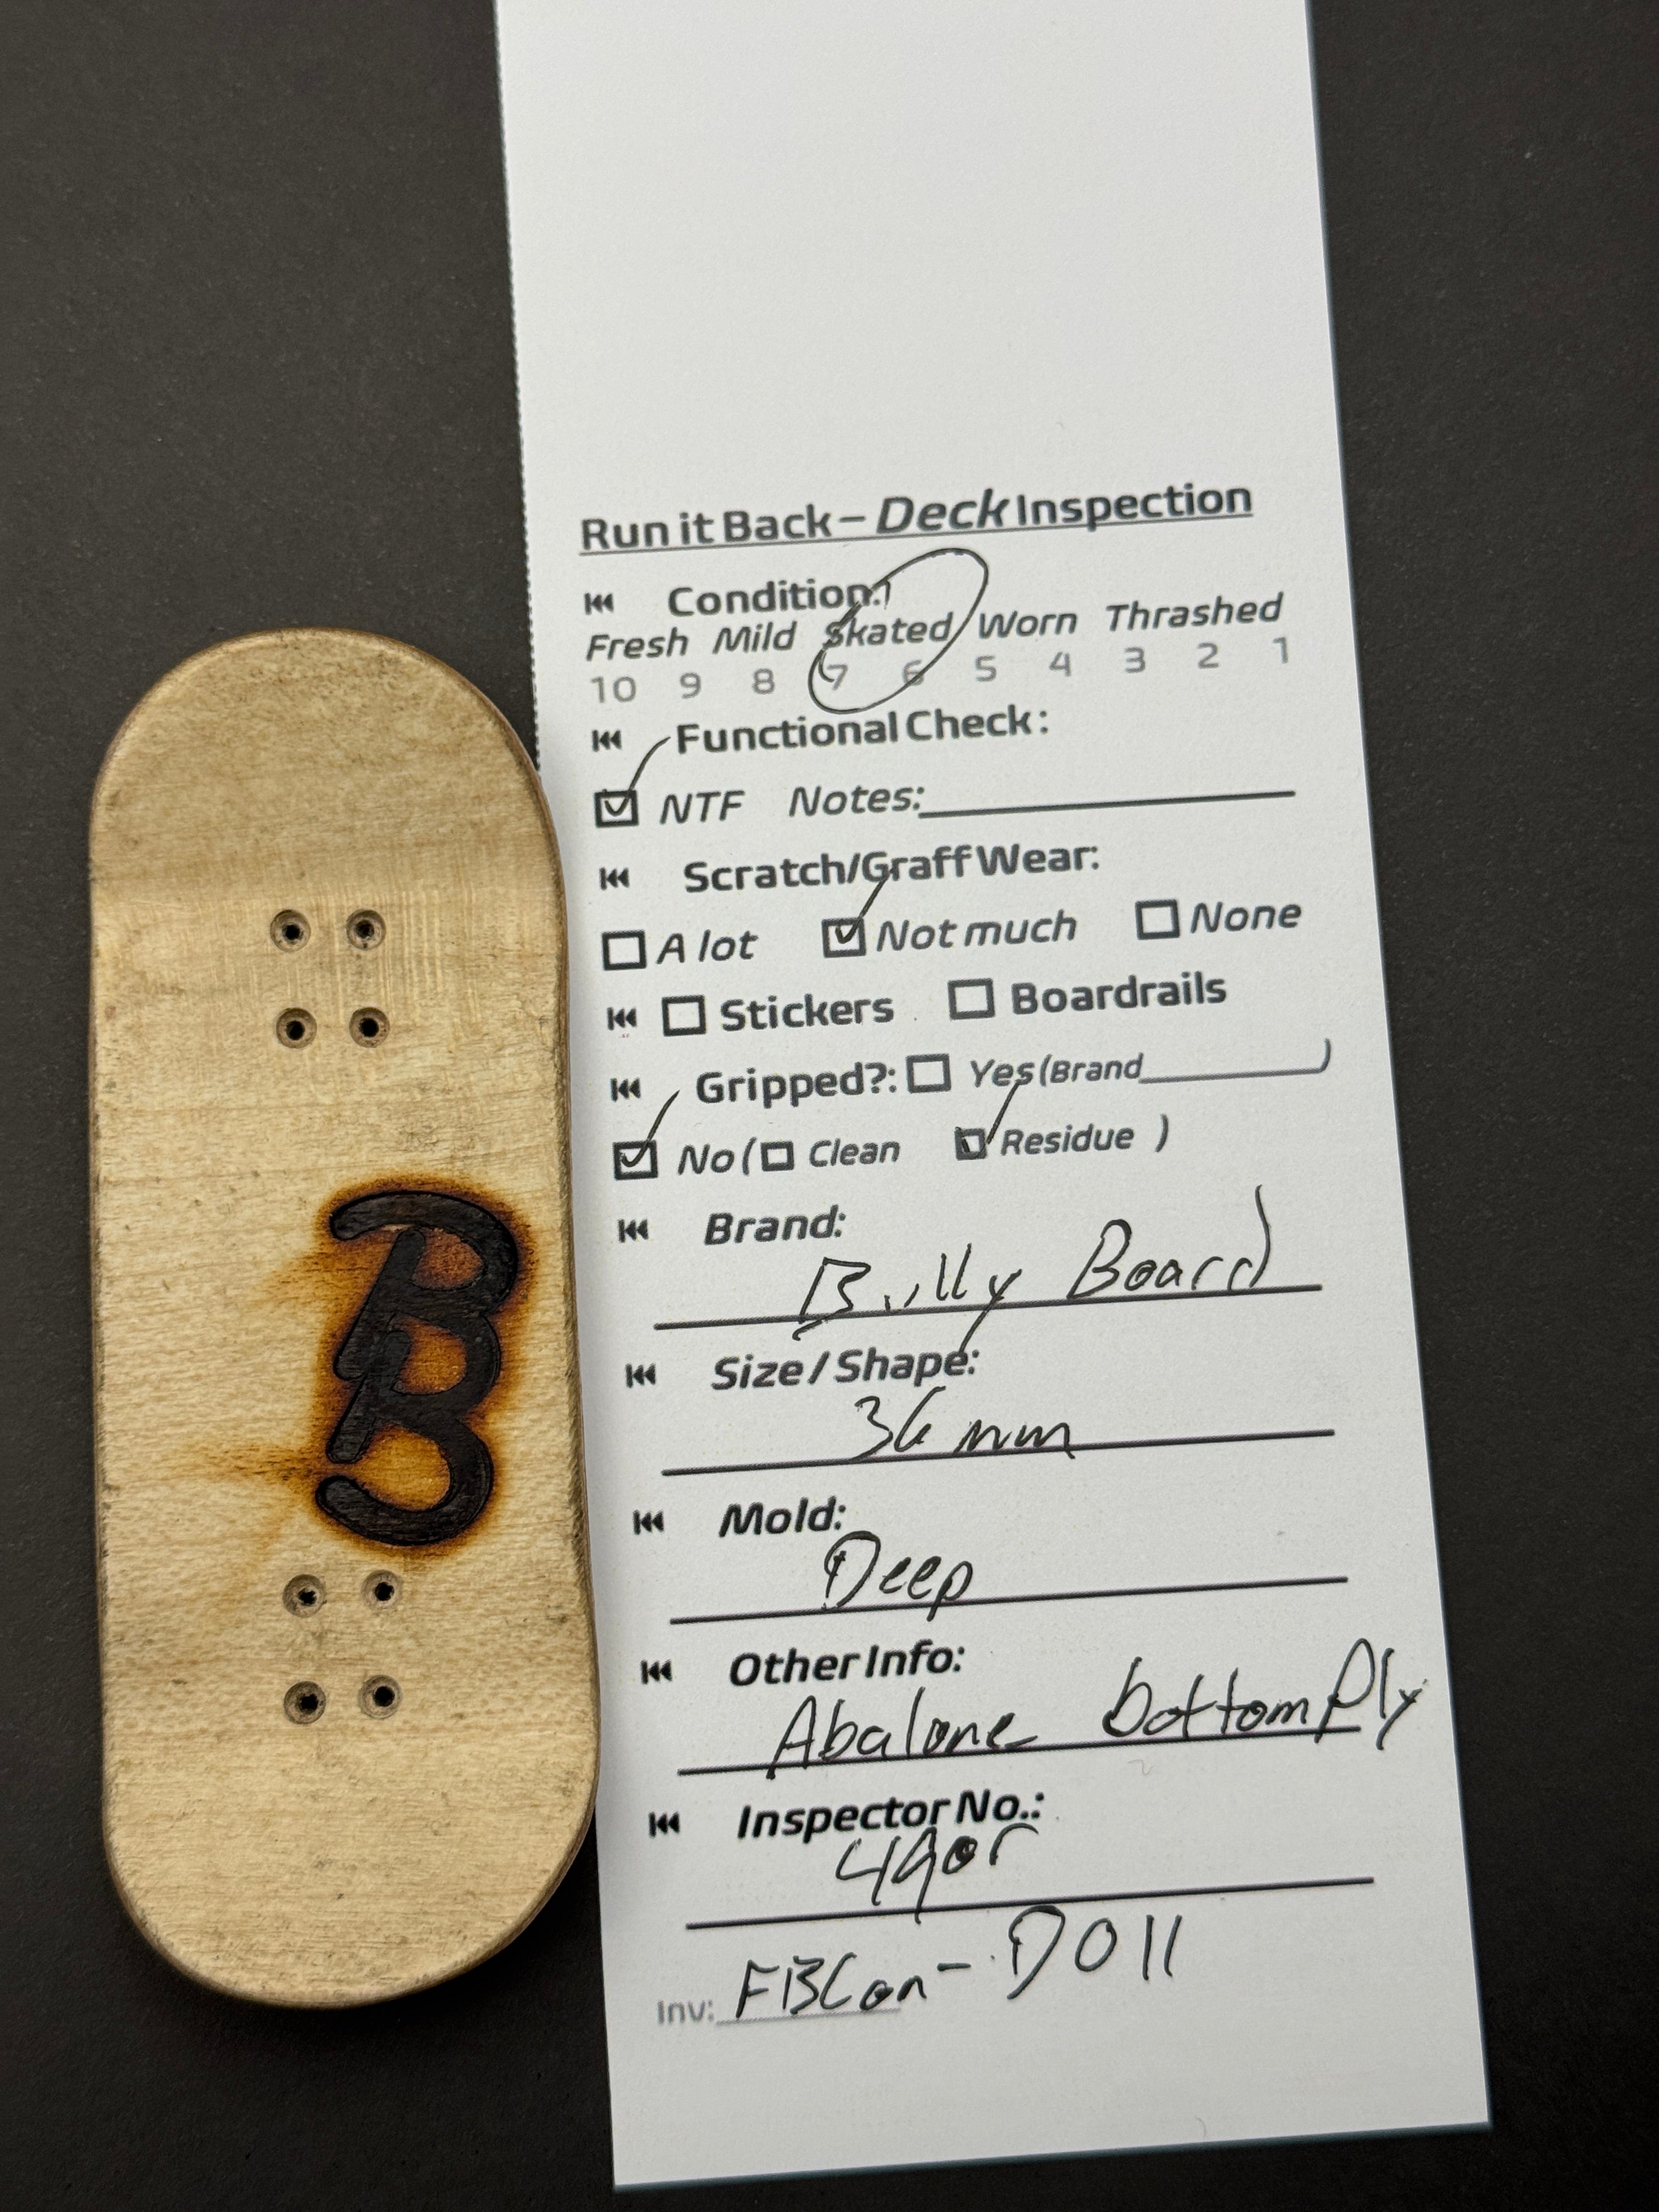 Run it Back – Deck Inspection
Condition:
Fresh Mild Skated Worn Thrashed
10 9 8 7 6 5 4 3 2 1
Functional Check:
NTF Notes:
Scratch/Graff Wear:
A lot Not much None
Stickers Boardrails
Gripped?: Yes (Brand )
No ( Clean Residue )
Brand:
Bully Board
Size / Shape:
36 mm
Mold:
Deep
Other Info:
Abalone bottom Ply
Inspector No.:
Inv: FBCon - D011
BB